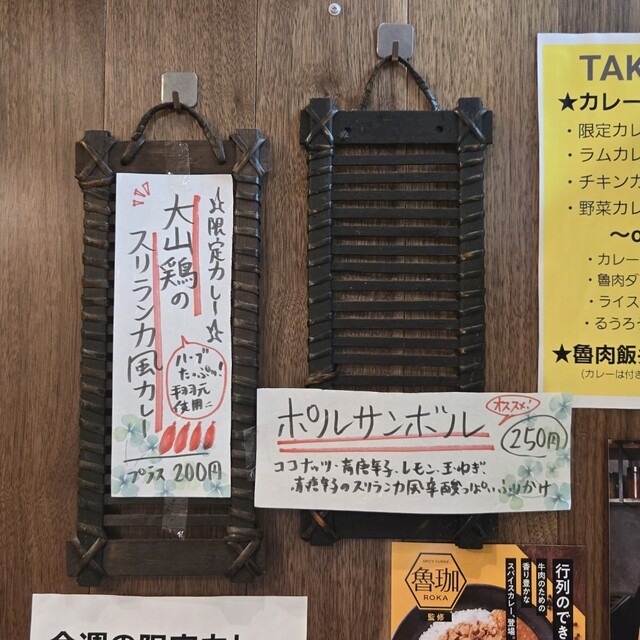 ☆限定カレー☆
大山鶏の
スリランカ風カレー
ハーブ
たっぷり!
使用に
プラス 200円
ポルサンボル
オススメ!
250円
ココナッツ・青唐辛子、レモン、玉ねぎ、
のスリランカ風辛酸っぱいふりかけ
TAK
★カレー
・限定カレ
・ラムカレ
・チキンカ
・野菜カレ
〜o
・カレー
・魯肉ダ
・ライス
・るうろ
★魯肉飯
(カレーは付き
魯珈
ROKA
監修
行列のでき
牛肉のための
香り豊かな
スパイスカレー、登場
今週の限定カレ